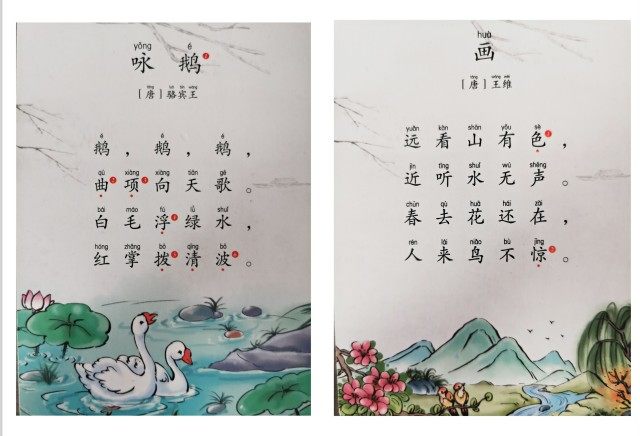 yǒng é
咏 鹅①
táng luò bīn wáng
[唐] 骆宾王
é é é
鹅，鹅，鹅，
qū xiàng xiàng tiān gē
曲②项③向天歌。
bái máo fú lǜ shuǐ
白毛浮④绿水，
hóng zhǎng bō qīng bō
红掌拨⑤清波⑥。
huà
画
táng wáng wéi
[唐] 王维
yuǎn kàn shān yǒu sè
远看山有色①，
jìn tīng shuǐ wú shēng
近听水无声。
chūn qù huā hái zài
春去花还在，
rén lái niǎo bù jīng
人来鸟不惊②。